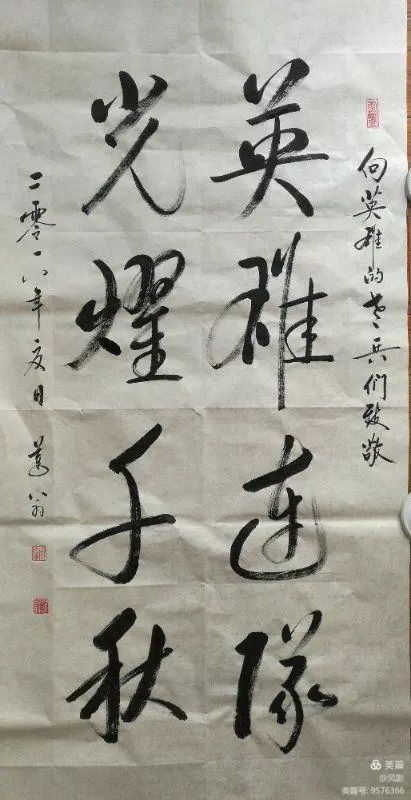 向英雄的老兵们致敬
英雄连隊
光耀千秋
二零一八年夏日 蓬翁
美篇
@风影
美篇号: 9576366